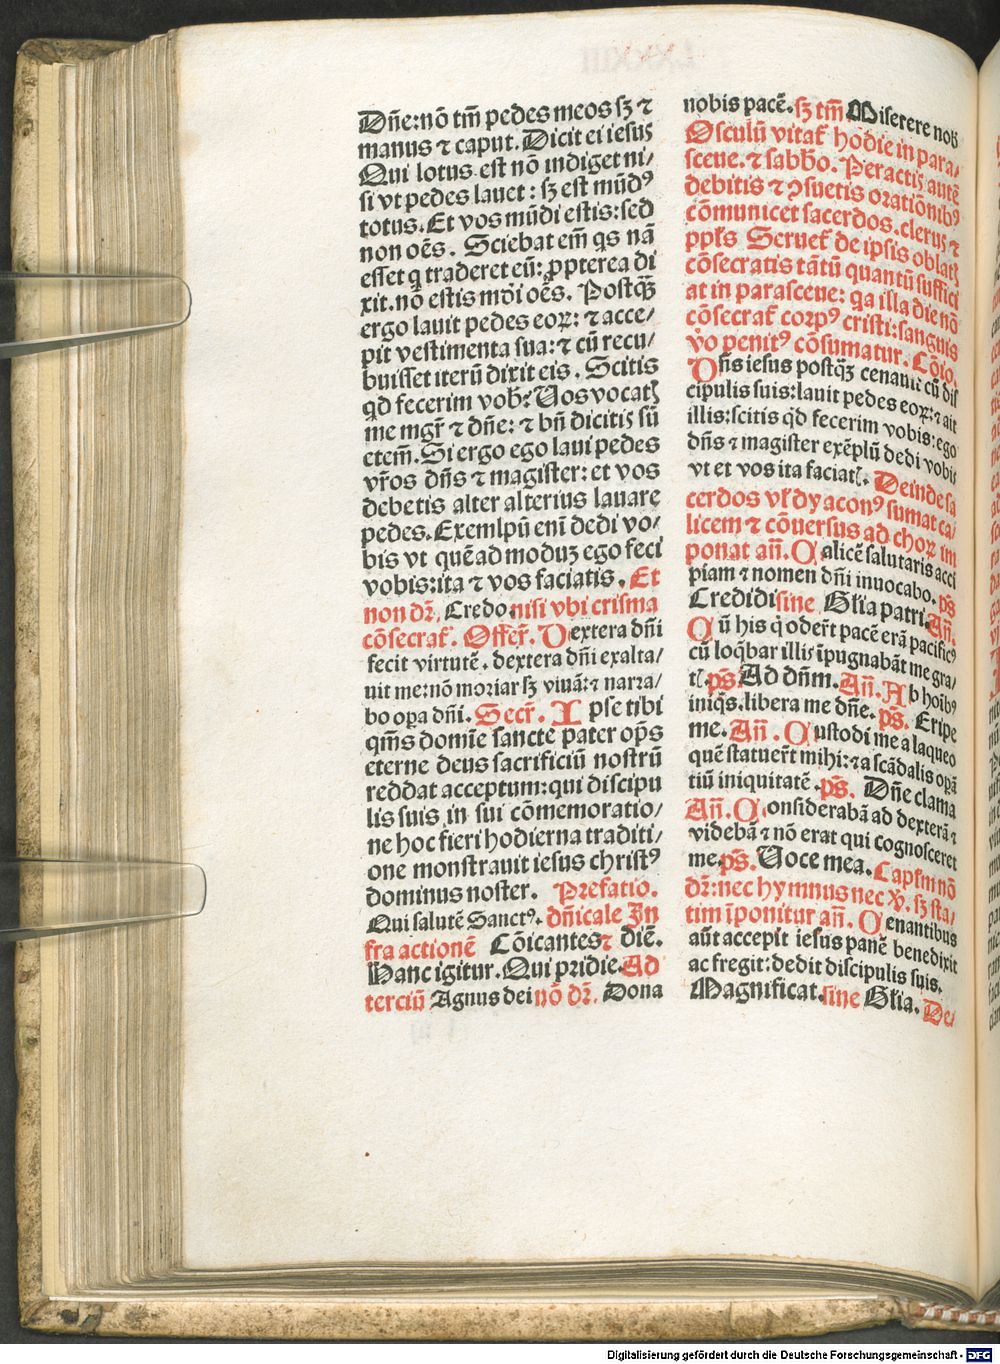 Dñe:nõ tm̃ pedes meos sꝫ ⁊
manus ⁊ caput. Dicit ei iesus
Qui lotus est nõ indiget ni/
si vt pedes lauet : sꝫ est mũdꝰ
totus. Et vos mũdi estis: sed
non oẽs . Sciebat em̃ qs nã
esset q traderet eũ: ꝓpterea di
xit. nõ estis mõi oẽs. Postqꝫ
ergo lauit pedes eoꝝ: ⁊ acce/
pit vestimenta sua: ⁊ cũ recu/
buisset iterũ dixit eis . Scitis
qd fecerim vob? Uos vocatꝭ
me mgr̃ ⁊ dñe: ⁊ bñ dicitis sũ
etem̃. Si ergo ego laui pedes
vr̃os dñs ⁊ magister: et vos
debetis alter alterius lauare
pedes. Exemlpũ eni dedi vo/
bis vt quẽadmoduꝫ ego feci
vobis: ita ⁊ vos faciatis . Et
non dr̃. Credo. nisi vbi crisma
cõsecrat̃. Offer̃. Dextera dñi
fecit virtutẽ . dextera dñi exalta/
uit me: nõ moriar sꝫ viuã: ⁊ narra/
bo oꝑa dñi. Secr̃. Ipse tibi
qm̃s domĩe sancte pater op̃s
eterne deus sacrificiũ nostrũ
reddat acceptum: qui discipu
lis suis in sui cõmemoratio/
ne hoc fieri hodierna traditi/
one monstrauit iesus christꝰ
dominus noster. Prefatio.
Qui salutẽ Sanctꝰ. dñicale In
fra actionẽ Cõicantes ⁊ diẽ.
Hanc igitur. Qui pridie. Ad
terciũ Agnus dei nõ dr̃. Dona
nobis pacẽ. sꝫ tm̃ Miserere nob
Osculũ vitat̃ hodie in para/
sceue. ⁊ sabbo. Peractis autẽ
debitis ⁊ ꝯsuetis oratiõnibꝰ
cõmunicet sacerdos. clerus ⁊
pp̃ls Seruet̃ de ipsis oblatꝭ
cõsecratis tãtũ quantũ suffici
at in parasceue: qa illa die nõ
cõsecrat̃ corpꝰ cristi: sanguis
ṽo penitꝰ cõsumatur. Cõio.
Dñs iesus postqꝫ cenauit cũ dis
cipulis suis: lauit pedes eoꝝ: ⁊ ait
illis: scitis qd fecerim vobis: ego
dñs ⁊ magister exẽplũ dedi vobis
vt et vos ita faciatꝭ. Deinde sa
cerdos vl̃ dyaconꝰ sumat ca/
licem ⁊ cõuersus ad choꝝ im
ponat añ. Calicẽ salutaris acci
piam ⁊ nomen dñi inuocabo. ps̃
Credidi sine Gl̃ia patri. Añ.
Cũ his q̇ oder̃t pacẽ erã pacificꝰ
cũ loq̃bar illis ĩpugnabãt me gra/
tꝭ. ps̃. Ad dñm. Añ. Ab hoĩbꝰ
iniqs. libera me dñe. ps̃. Eripe
me. Añ . Custodi me a laqueo
quẽ statuer̃t mihi: ⁊ a scãdalis opã
tiũ iniquitatẽ . ps̃. Dñe clama
Añ. Considerabã ad dexterã ⁊
videbã ⁊ nõ erat qui cognosceret
me. ps̃. Uoce mea. Capl̃m nõ
dr̃: nec hymnus nec v̾. sꝫ sta/
tim ĩponitur añ. Cenantibus
aũt accepit iesus panẽ benedixit
ac fregit: dedit discipulis suis.
Magnificat. sine Gl̃ia. De/
Digitalisierung gefördert durch die Deutsche Forschungsgemeinschaft - DFG